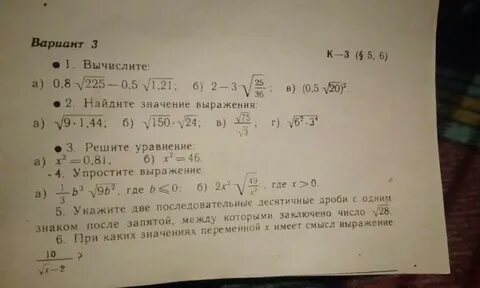 Вариант 3
К—3 (§ 5, 6)
● 1. Вычислите:
а) 0,8 √225 — 0,5 √1,21; б) 2 — 3 √(25/36); в) (0,5 √20)².
● 2. Найдите значение выражения:
а) √9·1,44; б) √150·√24; в) √75/√3; г) √6²·3⁴
● 3. Решите уравнение:
а) x²=0,81, б) x²=46.
4. Упростите выражение:
а) 1/3 b³ √9b², где b⩽0; б) 2x² √(49/x²), где x>0.
5. Укажите две последовательные десятичные дроби с одним
знаком после запятой, между которыми заключено число √28.
6. При каких значениях переменной x имеет смысл выражение
10/(√x—2) ?